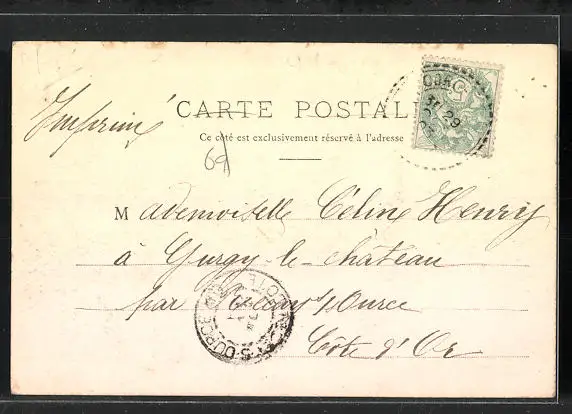 Imprimé
CARTE POSTALE
Ce côté est exclusivement réservé à l'adresse
69
Mademoiselle Céline Henry
à Gurgy-le-château
par s/Ource
Côte d'Or